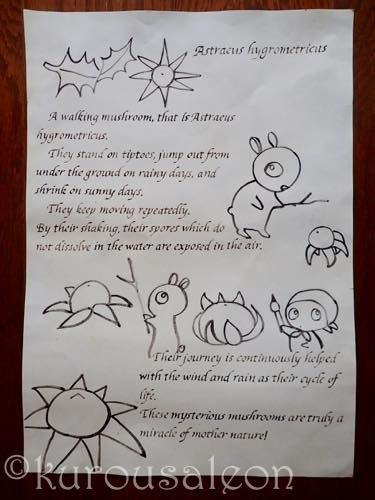 Astraeus hygrometricus
A walking mushroom, that is Astraeus
hygrometricus.
They stand on tiptoes, jump out from
under the ground on rainy days, and
shrink on sunny days.
They keep moving repeatedly.
By their shaking, their spores which do
not dissolve in the water are exposed in the air.
Their journey is continuously helped
with the wind and rain as their cycle of
life.
These mysterious mushrooms are truly a
miracle of mother nature!
©kurousaleon